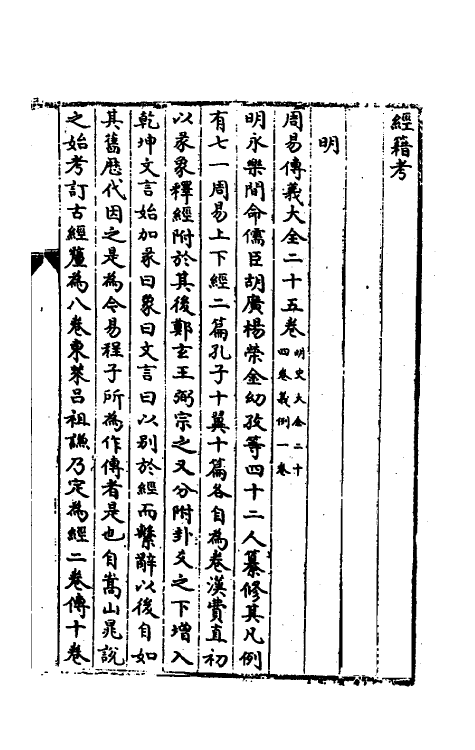 經籍考
明
周易傳義大全二十五卷明史大全二十四卷義例一卷
明永樂間命儒臣胡廣楊榮金幼孜等四十二人纂修其凡例
有七一周易上下經二篇孔子十翼十篇各自為卷漢費直初
以彖象釋經附於其後鄭玄王弼宗之又分附卦爻之下增入
乾坤文言始加彖曰象曰文言曰以别於經而繫辭以後自如
其舊歷代因之是為今易程子所為作傳者是也自嵩山晁說
之始考訂古經釐為八卷東萊吕祖謙乃定為經二卷傳十卷